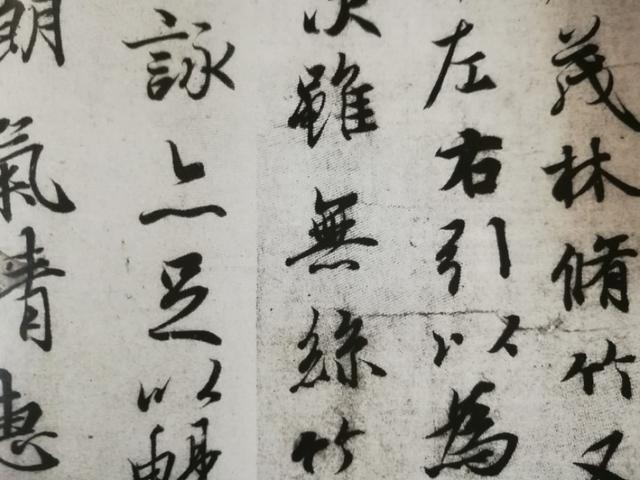 茂林脩竹又
左右引以為
次雖無絲竹
詠亦足以暢
朗氣清惠